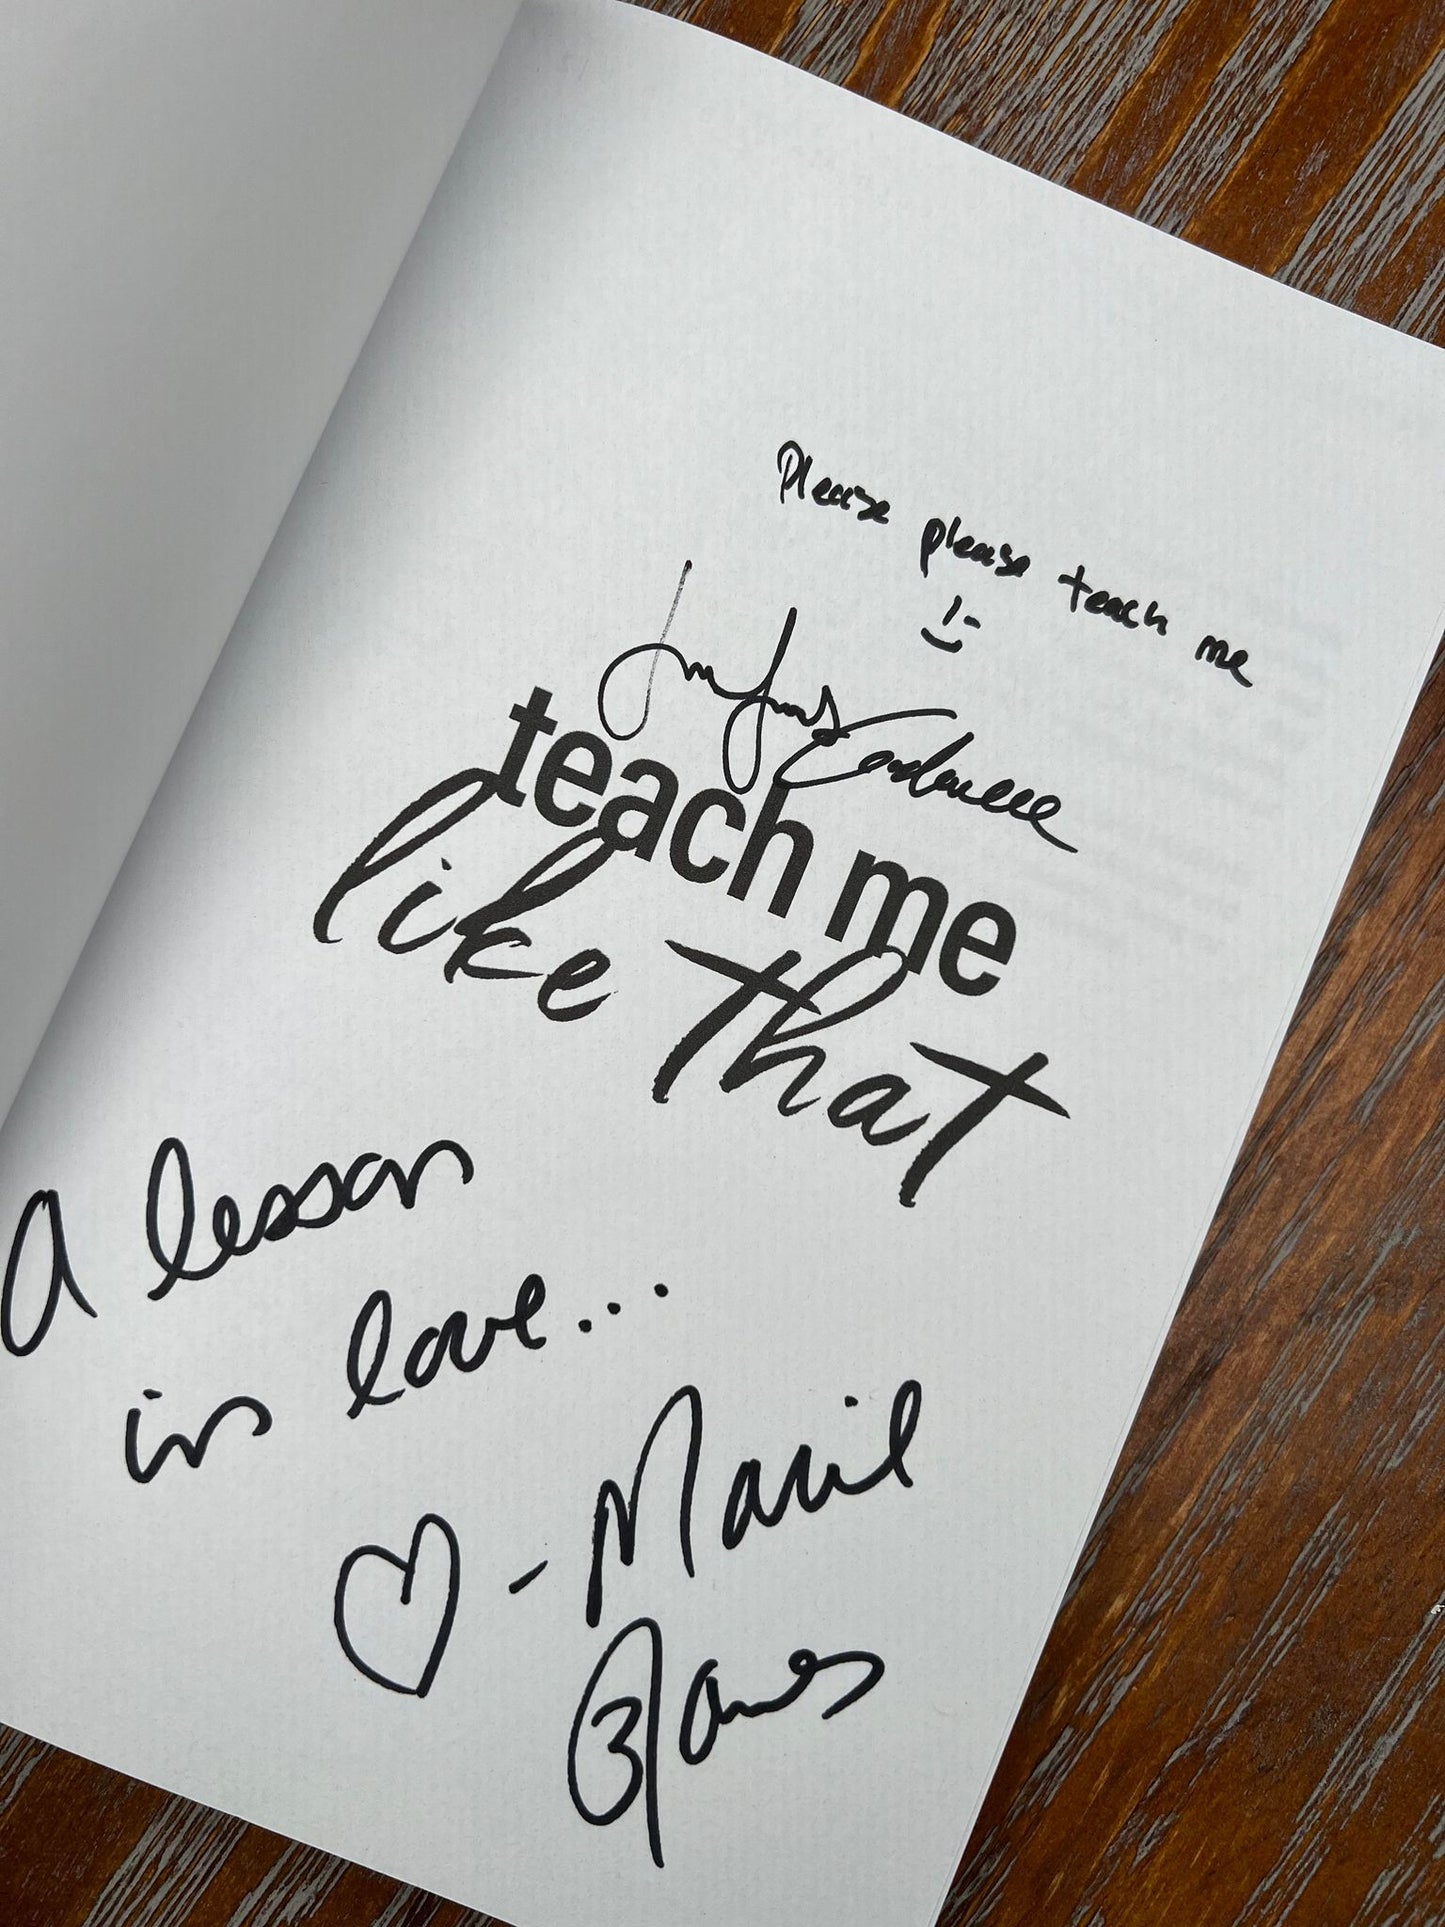 Please please teach me
teach me
like that
A lesson
in love...
♡ - Marie
James